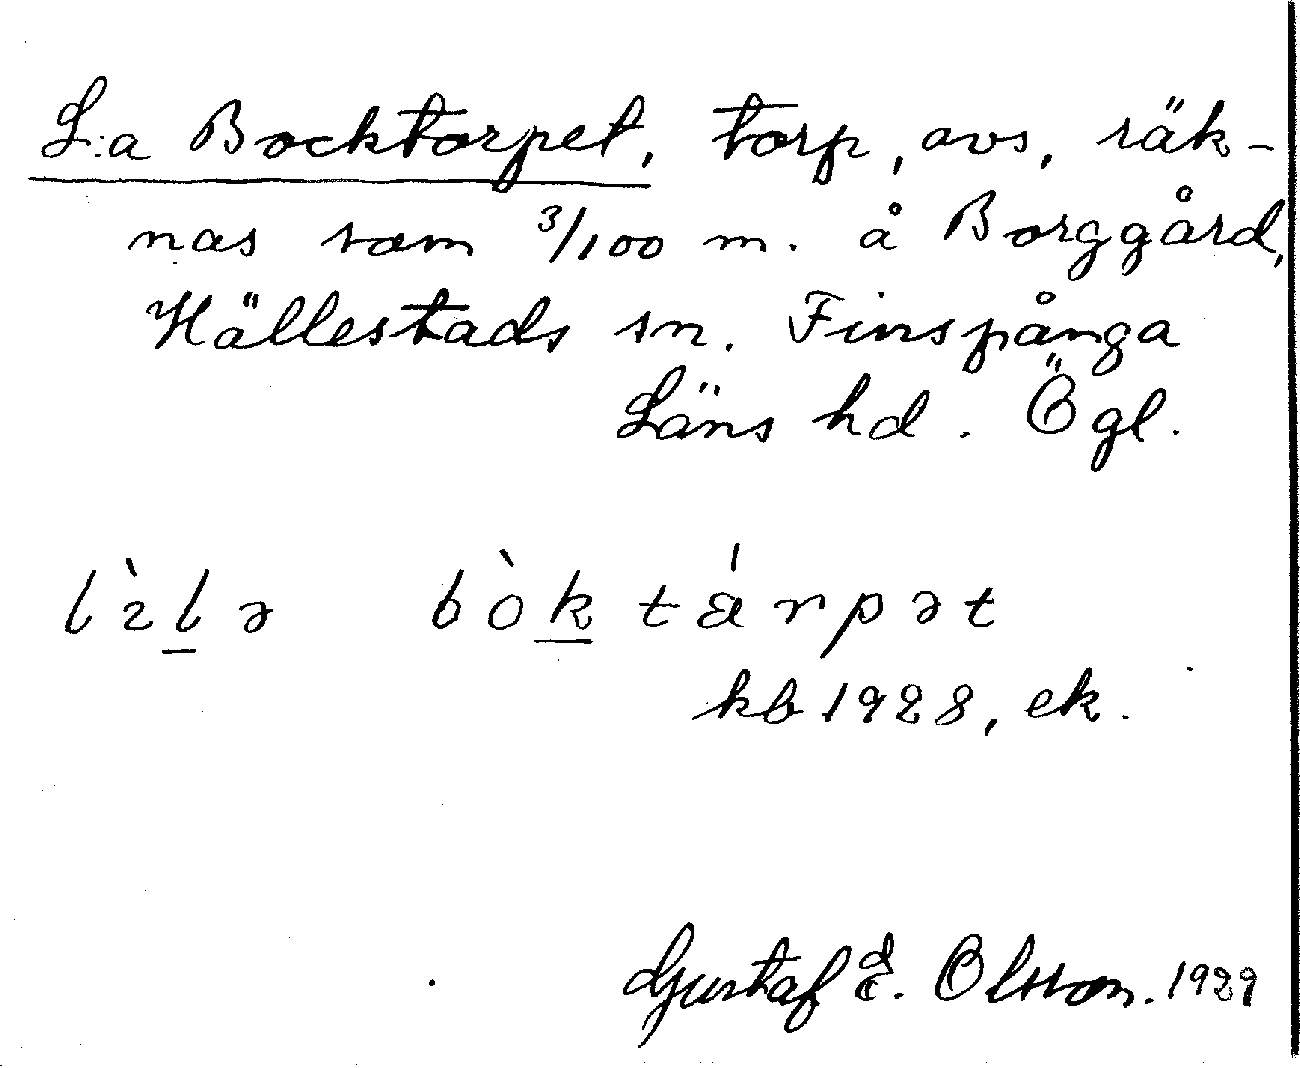 L:a Bocktorpet, torp, avs, räk-
nas som 3/100 m. å Borggård,
Hällestads sn. Finspånga
Läns hd. Ögl.
lìlə bòktárpət
kb 1928, ek.
Gustaf E. Olsson. 1929